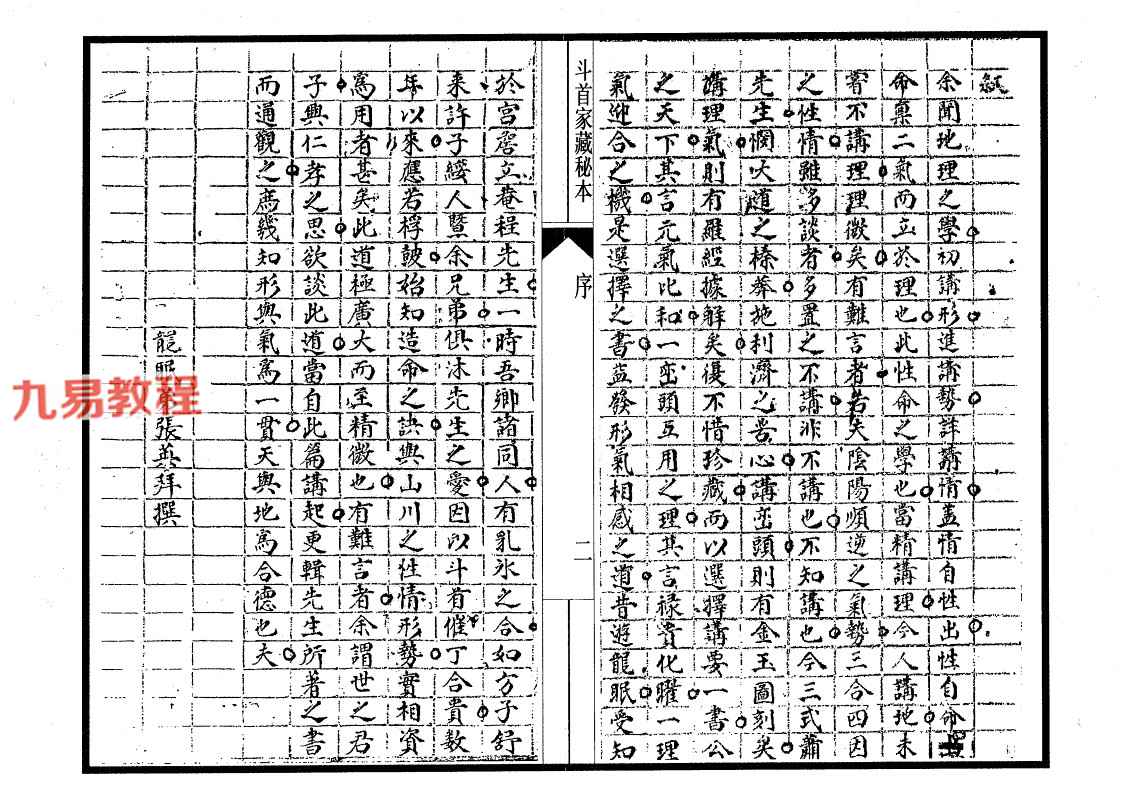 敍
余聞地理之學初講形進講勢詳講情蓋情自性出性自命
命稟二氣而立於理也此性命之學也當精講理今人講地未
著不講理理微矣有難言者若夫陰陽順逆之氣勢三合四因
之性情雖多談者多置之不講非不講也不知講也今三式蕭
先生憫大道之榛莽施利濟之苦心講巒頭則有金玉圖刻矣
講理氣則有羅經據解矣復不惜珍藏而以選擇講要一書公
之天下其言元氣比和一巒頭互用之理其言祿貴化曜一理
氣迎合之機是選擇之書益發形氣相感之道昔遊龍眠受知
斗首家藏秘本
序
二
於宮詹立菴程先生一時吾鄉諸同人有乳水之合如方子舒
来許子綏人暨余兄弟俱沐先生之愛因以斗首催丁合貴数
年以來應若桴鼓始知造命之訣與山川之性情形勢實相資
爲用者甚矣此道極廣大而至精微也有難言者余謂世之君
子興仁孝之思欲談此道當自此篇講起更輯先生所著之書
而通觀之庶幾知形與氣爲一貫天與地爲合德也夫
龍眠 張英拜撰
九易教程